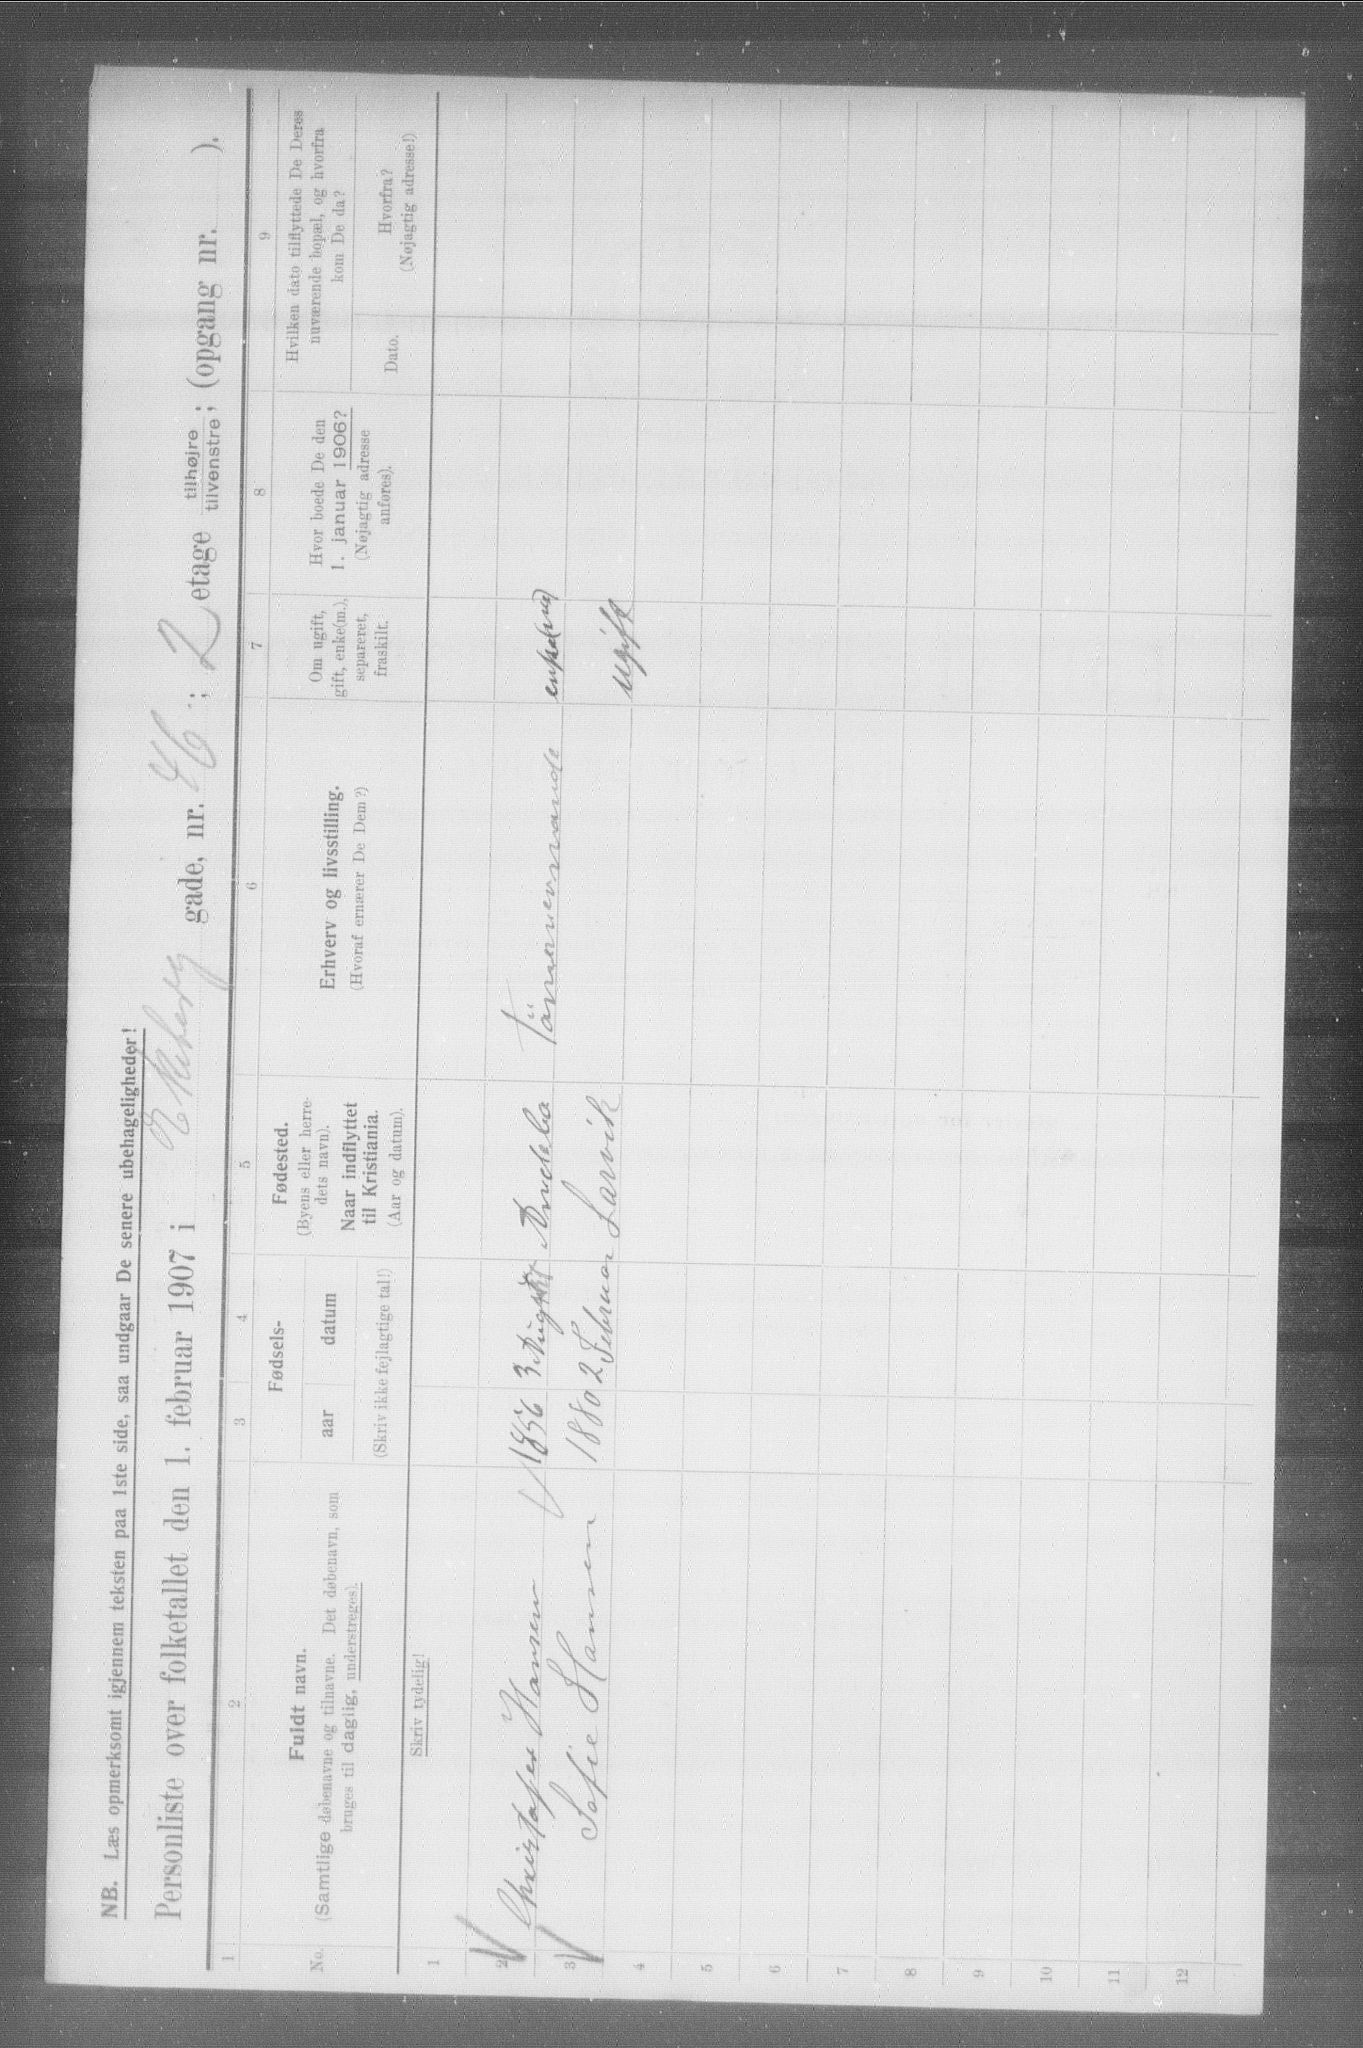 NB. Læs opmerksomt igjennem teksten paa 1ste side, saa undgaar De senere ubehageligheder!
Personliste over folketallet den 1. februar 1907 i Ekeberg gade, nr. 46; 2 etage tilhøjre tilvenstre; (opgang nr. ).
1 2 3 4 5 6 7 8 9
No.
Fuldt navn.
(Samtlige døbenavne og tilnavne. Det døbenavn, som
bruges til daglig, understreges).
Skriv tydelig!
Fødsels-
aar datum
(Skriv ikke fejlagtige tal!)
Fødested.
(Byens eller herre-
dets navn).
Naar indflyttet
til Kristiania.
(Aar og datum).
Erhverv og livsstilling.
(Hvoraf ernærer De Dem?)
Om ugift,
gift, enke(m.),
separeret,
fraskilt.
Hvor boede De den
1. januar 1906?
(Nøjagtig adresse
anføres).
Hvilken dato tilflyttede De Deres
nuværende bopæl, og hvorfra
kom De da?
Dato.
Hvorfra?
(Nøjagtig adresse!)
1
2 Christofer Hansen 1856 3 August Tömmermand
3 Sofie Hansen 1880 2 Februar Larvik ugift
4
5
6
7
8
9
10
11
12